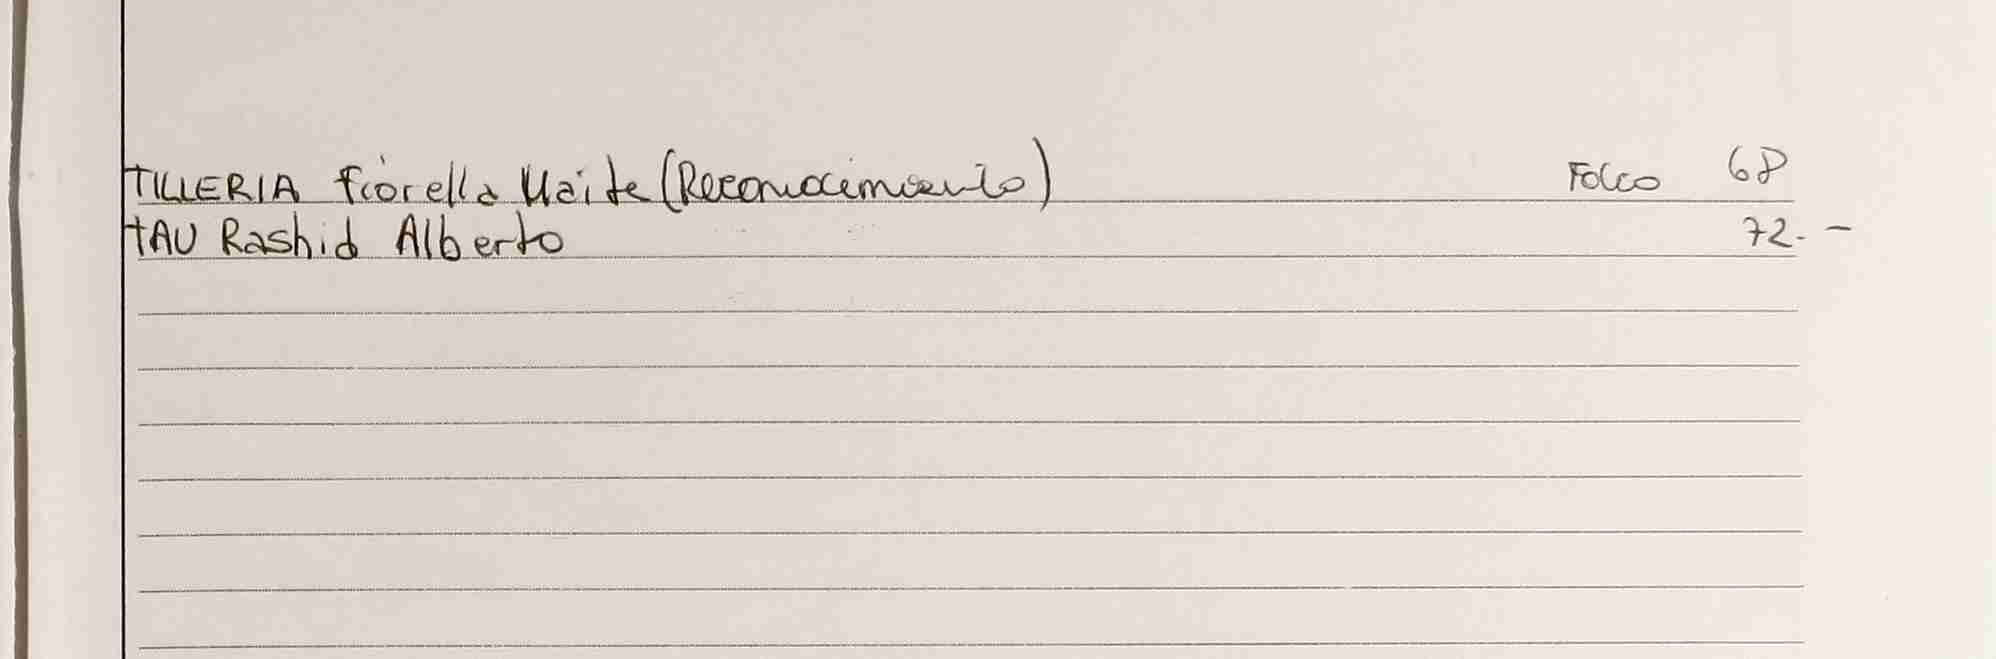 TILLERIA Fiorella Maite (Reconocimiento) Folio 68
TAU Rashid Alberto 72. -